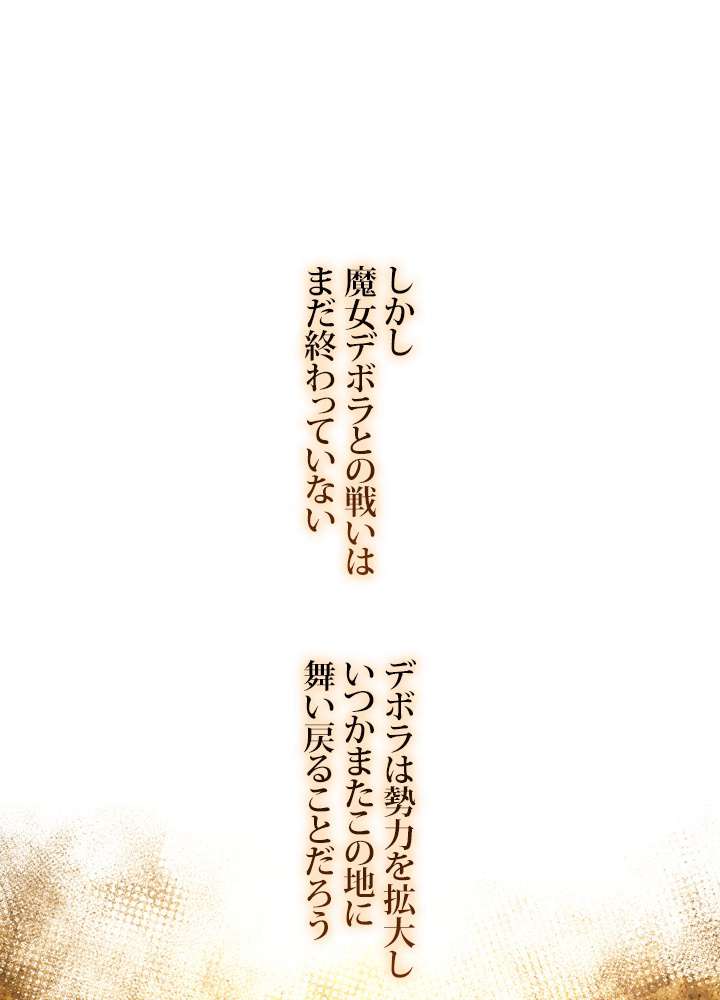 しかし
魔女デボラとの戦いは
まだ終わっていない
デボラは勢力を拡大し
いつかまたこの地に
舞い戻ることだろう